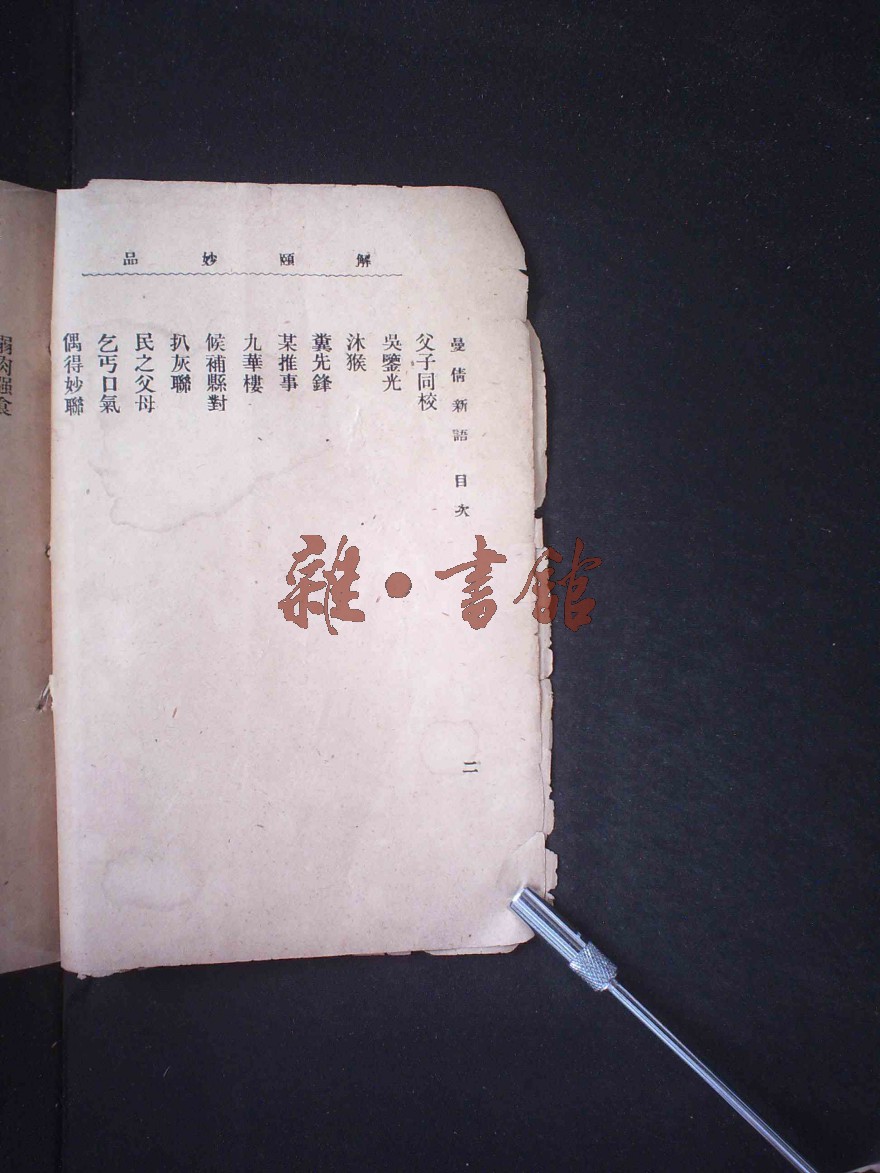 解頤妙品
曼倩新語 目次
二
父子同校
吳鑒光
沐猴
糞先鋒
某推事
九華樓
候補縣對
扒灰聯
民之父母
乞丐口氣
偶得妙聯
弱肉強食
雜·書館